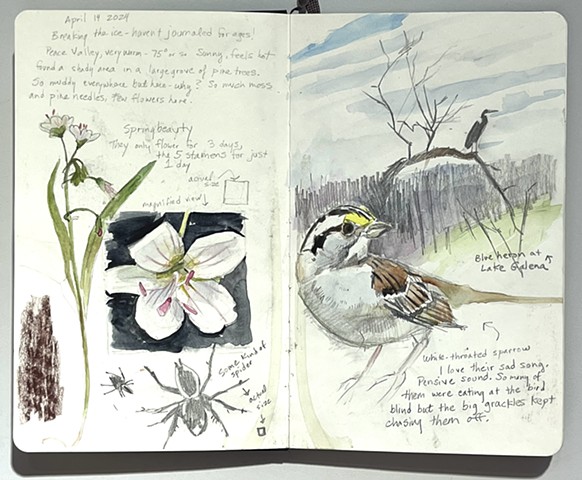 April 19 2024
Breaking the ice - haven't journaled for ages!
Peace Valley, very warm - 75° or so Sunny, feels hot
found a shady area in a large grove of pine trees.
So muddy everywhere but here - why? So much moss
and pine needles, few flowers here.
Spring beauty
They only flower for 3 days,
the 5 stamens for just
1 day
actual size
magnified view
Some kind of
spider
actual
size
Blue heron at
Lake Galena
White-throated sparrow
I love their sad song.
Pensive sound. So many of
them were eating at the bird
blind but the big grackles kept
chasing them off.